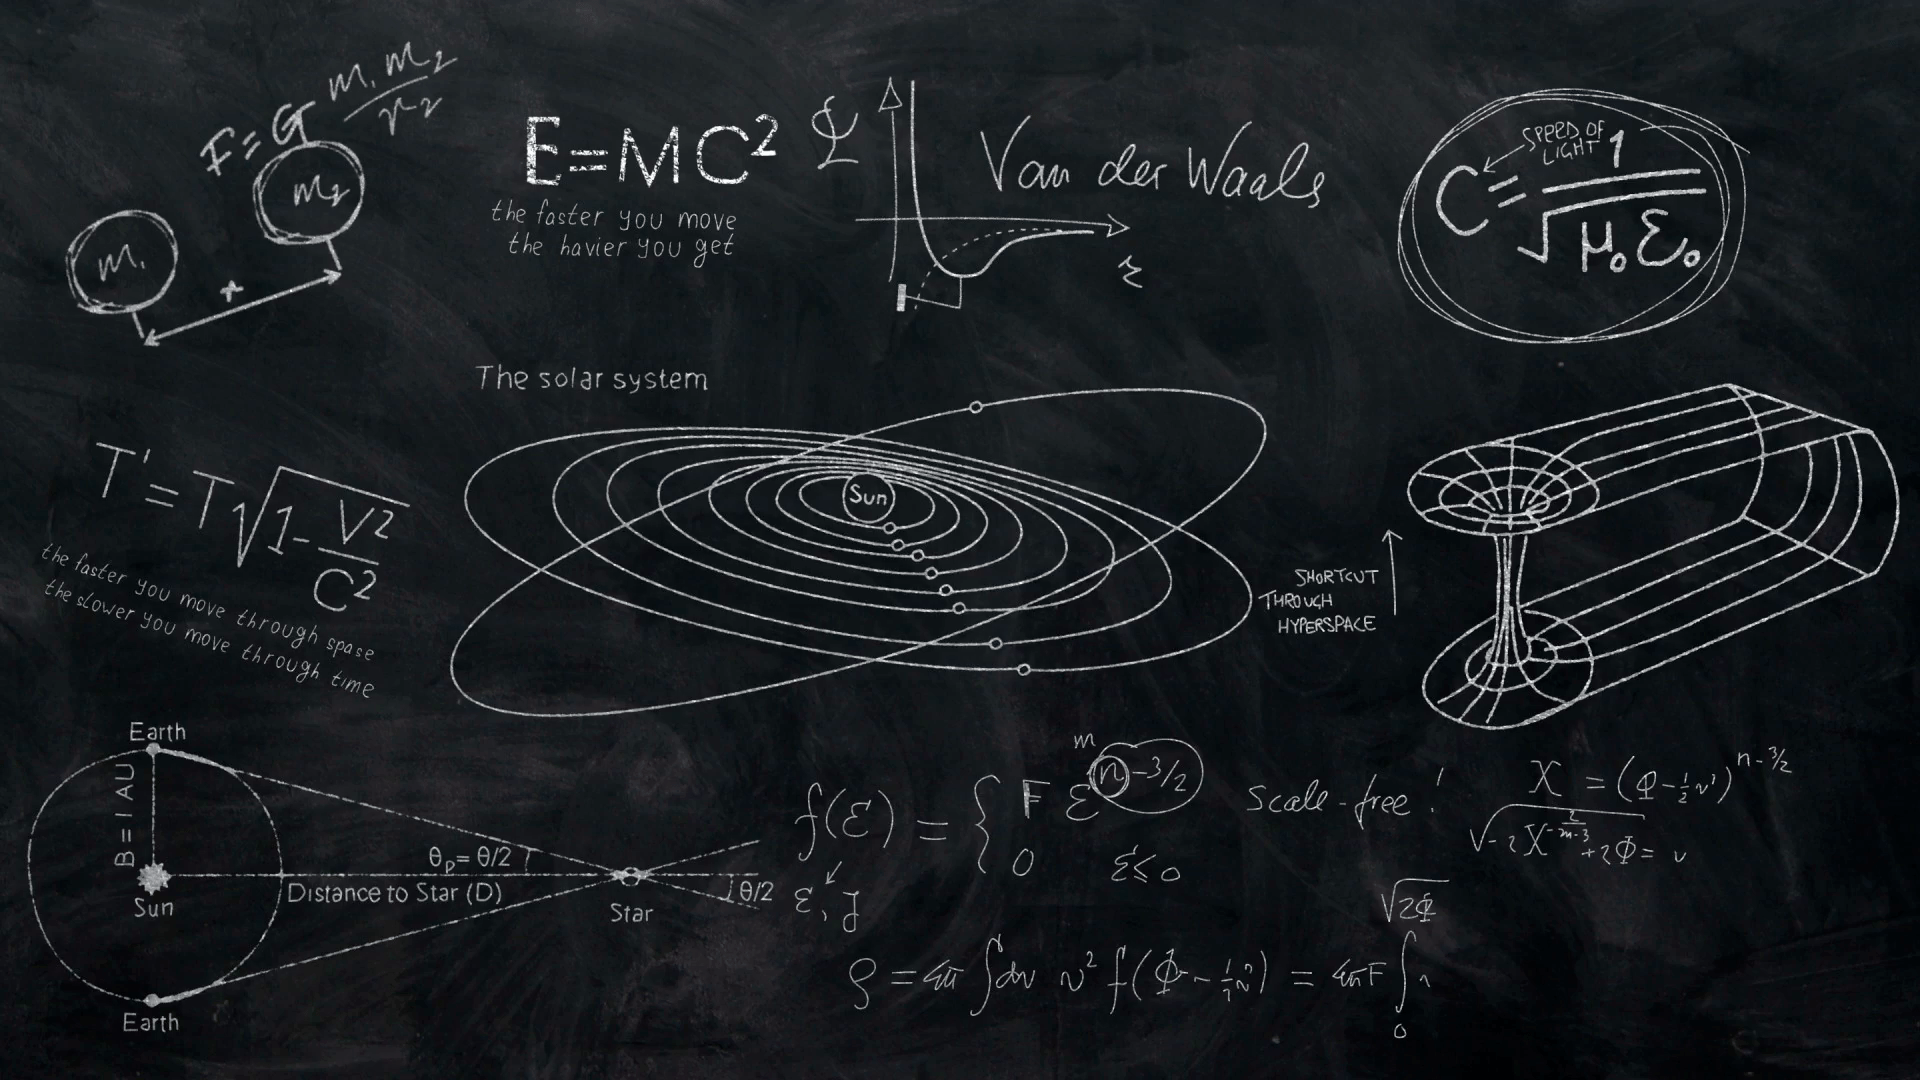 F=G m₁m₂/r₂
m₁
m₂
E=MC²
the faster you move
the havier you get
Φ
Van der Waals
r
SPEED OF
LIGHT
C = 1/√μ₀ε₀
The solar system
Sun
T'=T√1-V²/C²
the faster you move through spase
the slower you move through time
SHORTCUT
THROUGH
HYPERSPACE
Earth
B = 1 AU
θp = θ/2
Distance to Star (D)
θ/2
Sun
Star
Earth
m
f(ε) = { F ε n-3/2
0 ε≤0
Scale-free!
ε, J
X = (Φ-½v²) n-3/2
√2Φ
ρ = 4π ∫dv v² f(Φ-½v²) = 4πF ∫
0